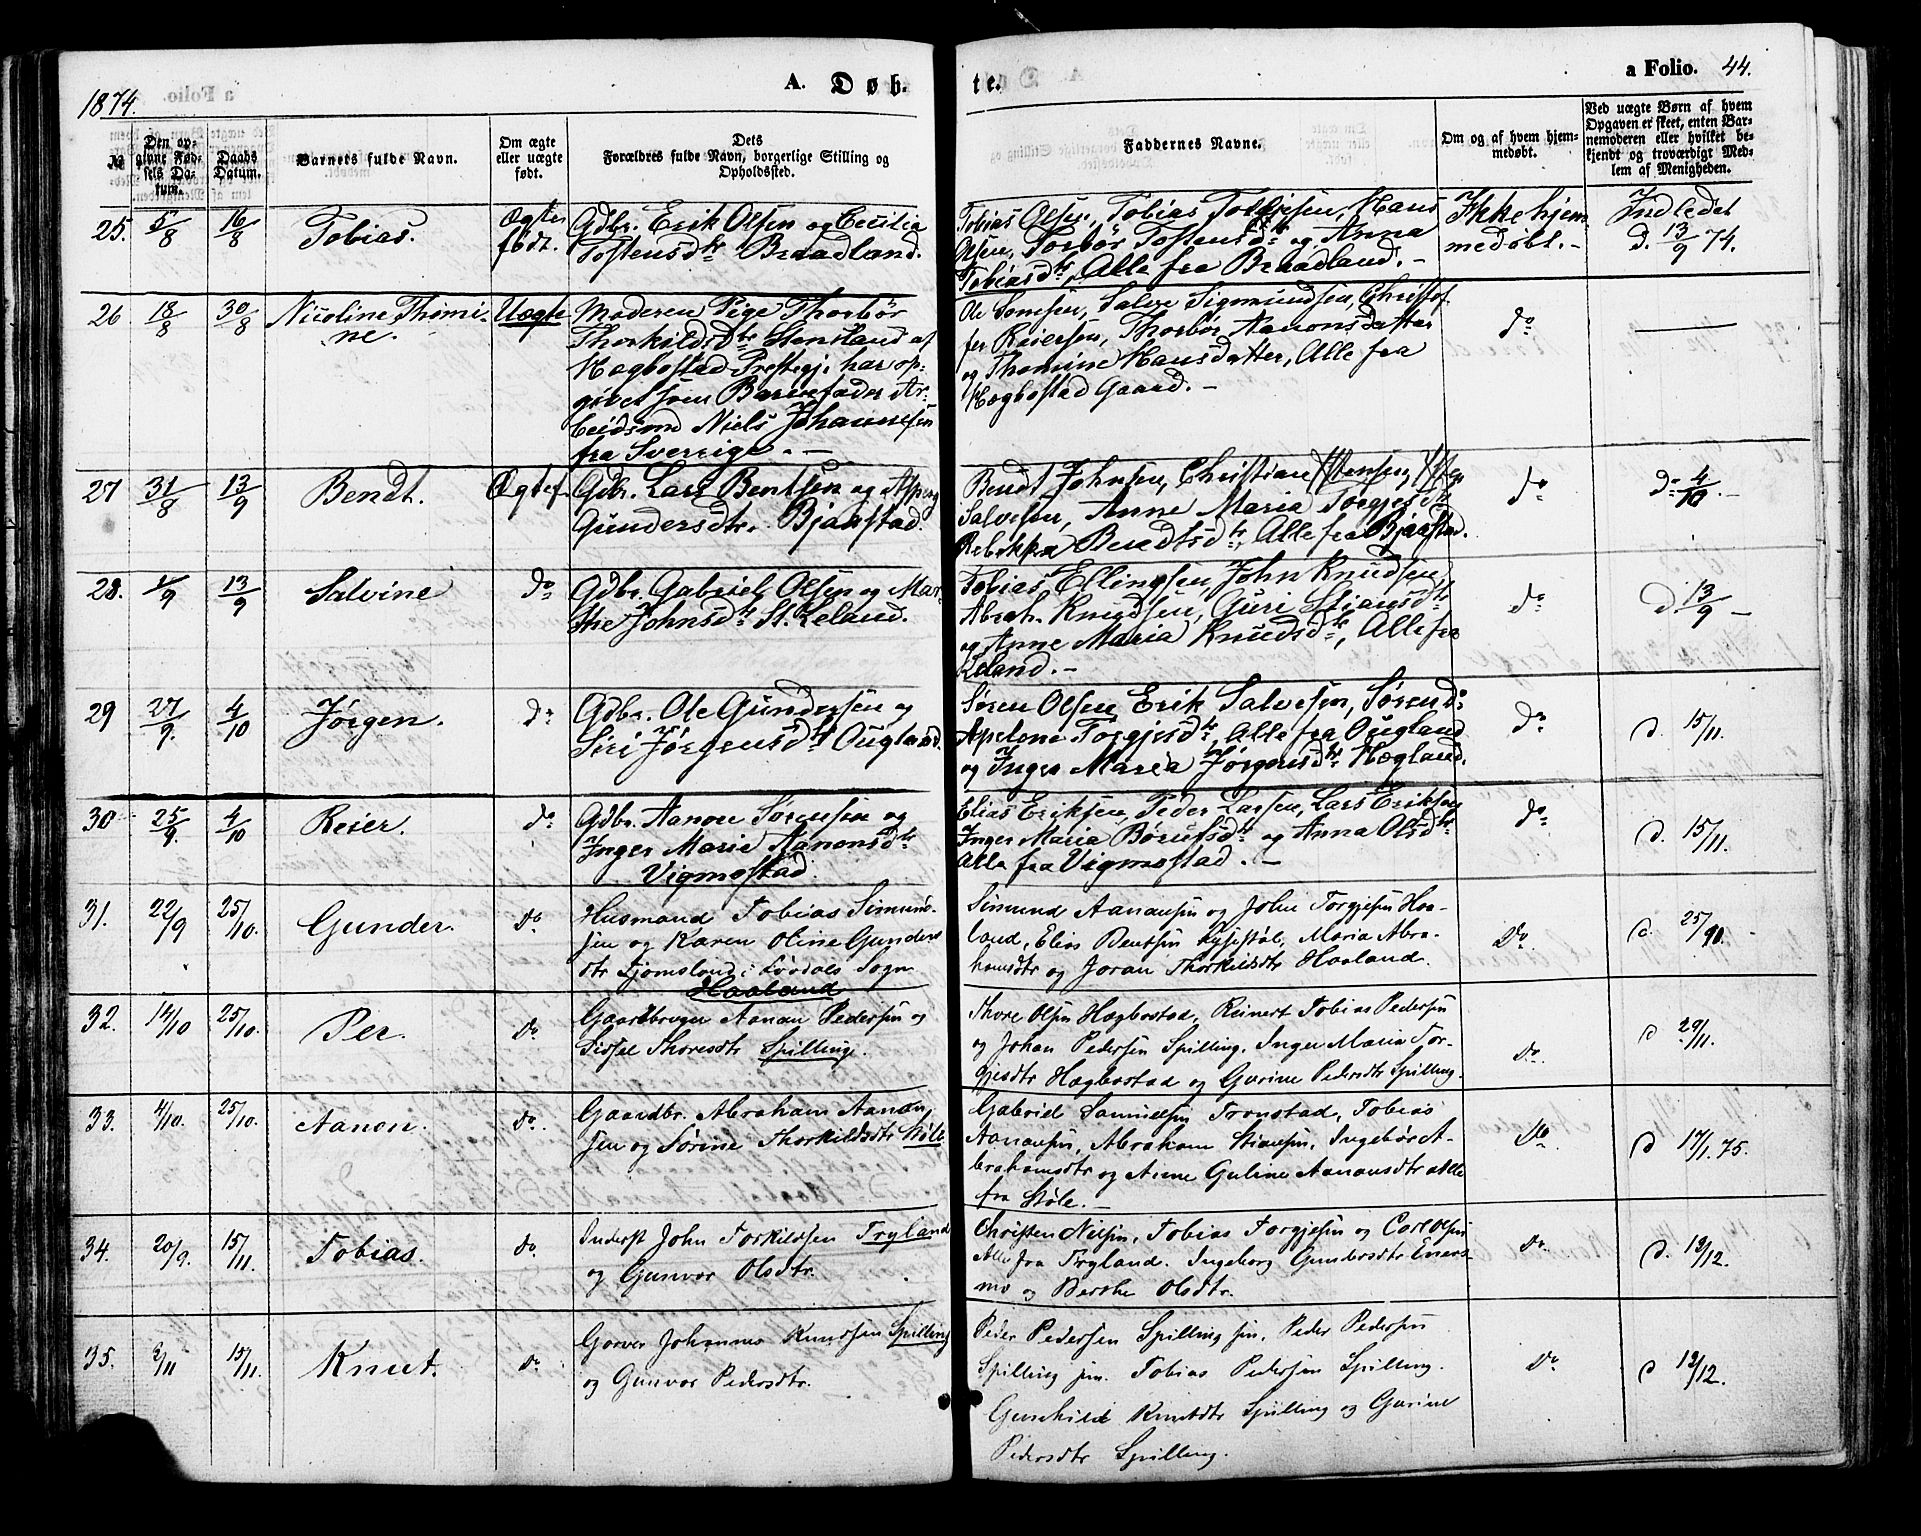 1874.
A. Døb-
te.
a Folio. 44.
№
Den opgivne Fødsels Datum.
Daabs Datum.
Barnets fulde Navn.
Om ægte eller uægte født.
Dets Forældres fulde Navn, borgerlige Stilling og Opholdssted.
Faddernes Navne.
Om og af hvem hjemmedøbt.
Ved uægte Børn af hvem Opgaven er skeet, enten Barnemoderen eller hvilket bekjendt og troværdigt Medlem af Menigheden.
25. 5/8 16/8 Tobias. Ægte
født.
Gdbr. Erik Olsen og Cecilia
Tostensdtr Braadland.
Tobias Olsen, Tobias Torgjesen, Hans
Olsen, Torbör Tostensdtr og Anna
Tobiasdtr, Alle fra Braadland. -
Ikke hjem
medøbt. -
Indledet
d. 13/9 74.
26 18/8 30/8 Nicoline Thomi-
ne. Uægte
Moderen Pige Thorbör
Thorkildsdtr Stenland af
Hægbostad Prestegj. har op-
givet som Barnefader Ar-
beidsmd Niels Johannesen
fra Sverrige. -
Ole Sørensen, Salve Sigmundsen, Christof
fer Reiersen, Thorbör Aanonsdatter
og Thomine Hansdatter, Alle fra
Hægbostad Gaard. -
do
27 31/8 13/9 Bendt. Ægtef.
Gdbr. Lars Bentsen og
Gundersdtr. Bjærstad.
Bendt Johnsen, Christian
Salvesen, Anne Maria Torgjesdtr
Rebekka Bendtsdtr, Alle fra Bjærstad.
do
d. 4/10. -
28. 1/9 13/9 Salvine do
Gdbr. Gabriel Olsen og Mar-
the Johnsdtr St. Leland.
Tobias Ellingsen, John Knudsen,
Abrah. Knudsen, Guri Stiansdtr
og Anne Maria Knudsdtr, Alle fra
Leland. -
do
d. 13/9 -
29 27/9. 4/10 Jørgen. do
Gdbr. Ole Gundersen og
Siri Jørgensdtr Ougland.
Søren Olsen, Erik Salvesen, Sørend:
Apelone Torgjesdtr, Alle fra Ougland
og Inger Maria Jørgensdtr Hægland.
do
d. 15/11.
30 25/9. 4/10 Reier. do
Gdbr. Aanon Sørensen og
Inger Marie Aanonsdtr
Vigmostad.
Elias Eriksen, Peder Larsen, Lars Eriksen
Inger Maria Börufsdtr og Anna Olsdtr
Alle fra Vigmostad. -
do
d. 15/11.
31. 22/9 25/10. Gunder. do
Husmand Tobias Simund-
sen og Karen Oline Gunders
dtr Fjomsland i Løvdals Sogn
Haaland
Simund Aanensen og John Torgjesen Haa-
land, Elias Bentsen Lysestøl, Maria Abra-
hamsdtr og Joran Thorkildsdtr Haaland.
Do
d. 25/10.
32. 14/10 25/10. Per. do
Gaardbruger Aanon Pedersen og
Sissel Thoresdtr Spilling.
Thore Olsen Hægbostad, Reinert Tobias Pedersen
og Johan Pedersen Spilling. Inger Maria Tor-
gjesdtr Hægbostad og Gurine Pedersdtr Spilling.
Do.
d 29/11.
33. 4/10. 25/10. Aanon. do.
Gaardbr. Abraham Aanon-
sen og Sørine Thorkildsdtr Støle.
Gabriel Samuelsen Tronstad, Tobias
Aanansen, Abraham Stiansen, Ingebör A-
brahamsdtr og Anne Guline Aanansdtr Alle
fra Støle. -
Do
d 17/1. 75.
34. 20/9. 15/11. Tobias. do.
Inderst John Torkildsen Tryland
og Gunvor Olsdtr.
Christen Nilsen, Tobias Torgjesen og Carl Olsen
Alle fra Tryland. Ingeborg Gundersdtr Eners-
mo og Berthe Olsdtr.
Do.
d. 12/12.
35. 2/11 15/11. Knut. do
Garver Johannes Knudsen Spilling
og Gunvor Pedersdtr.
Peder Pedersen Spilling sen. Peder Pedersen
Spilling jun. Tobias Pedersen Spilling.
Gunhild Knutsdtr Spilling og Gurine
Pedersdtr Spilling.
Do.
d 12/12.